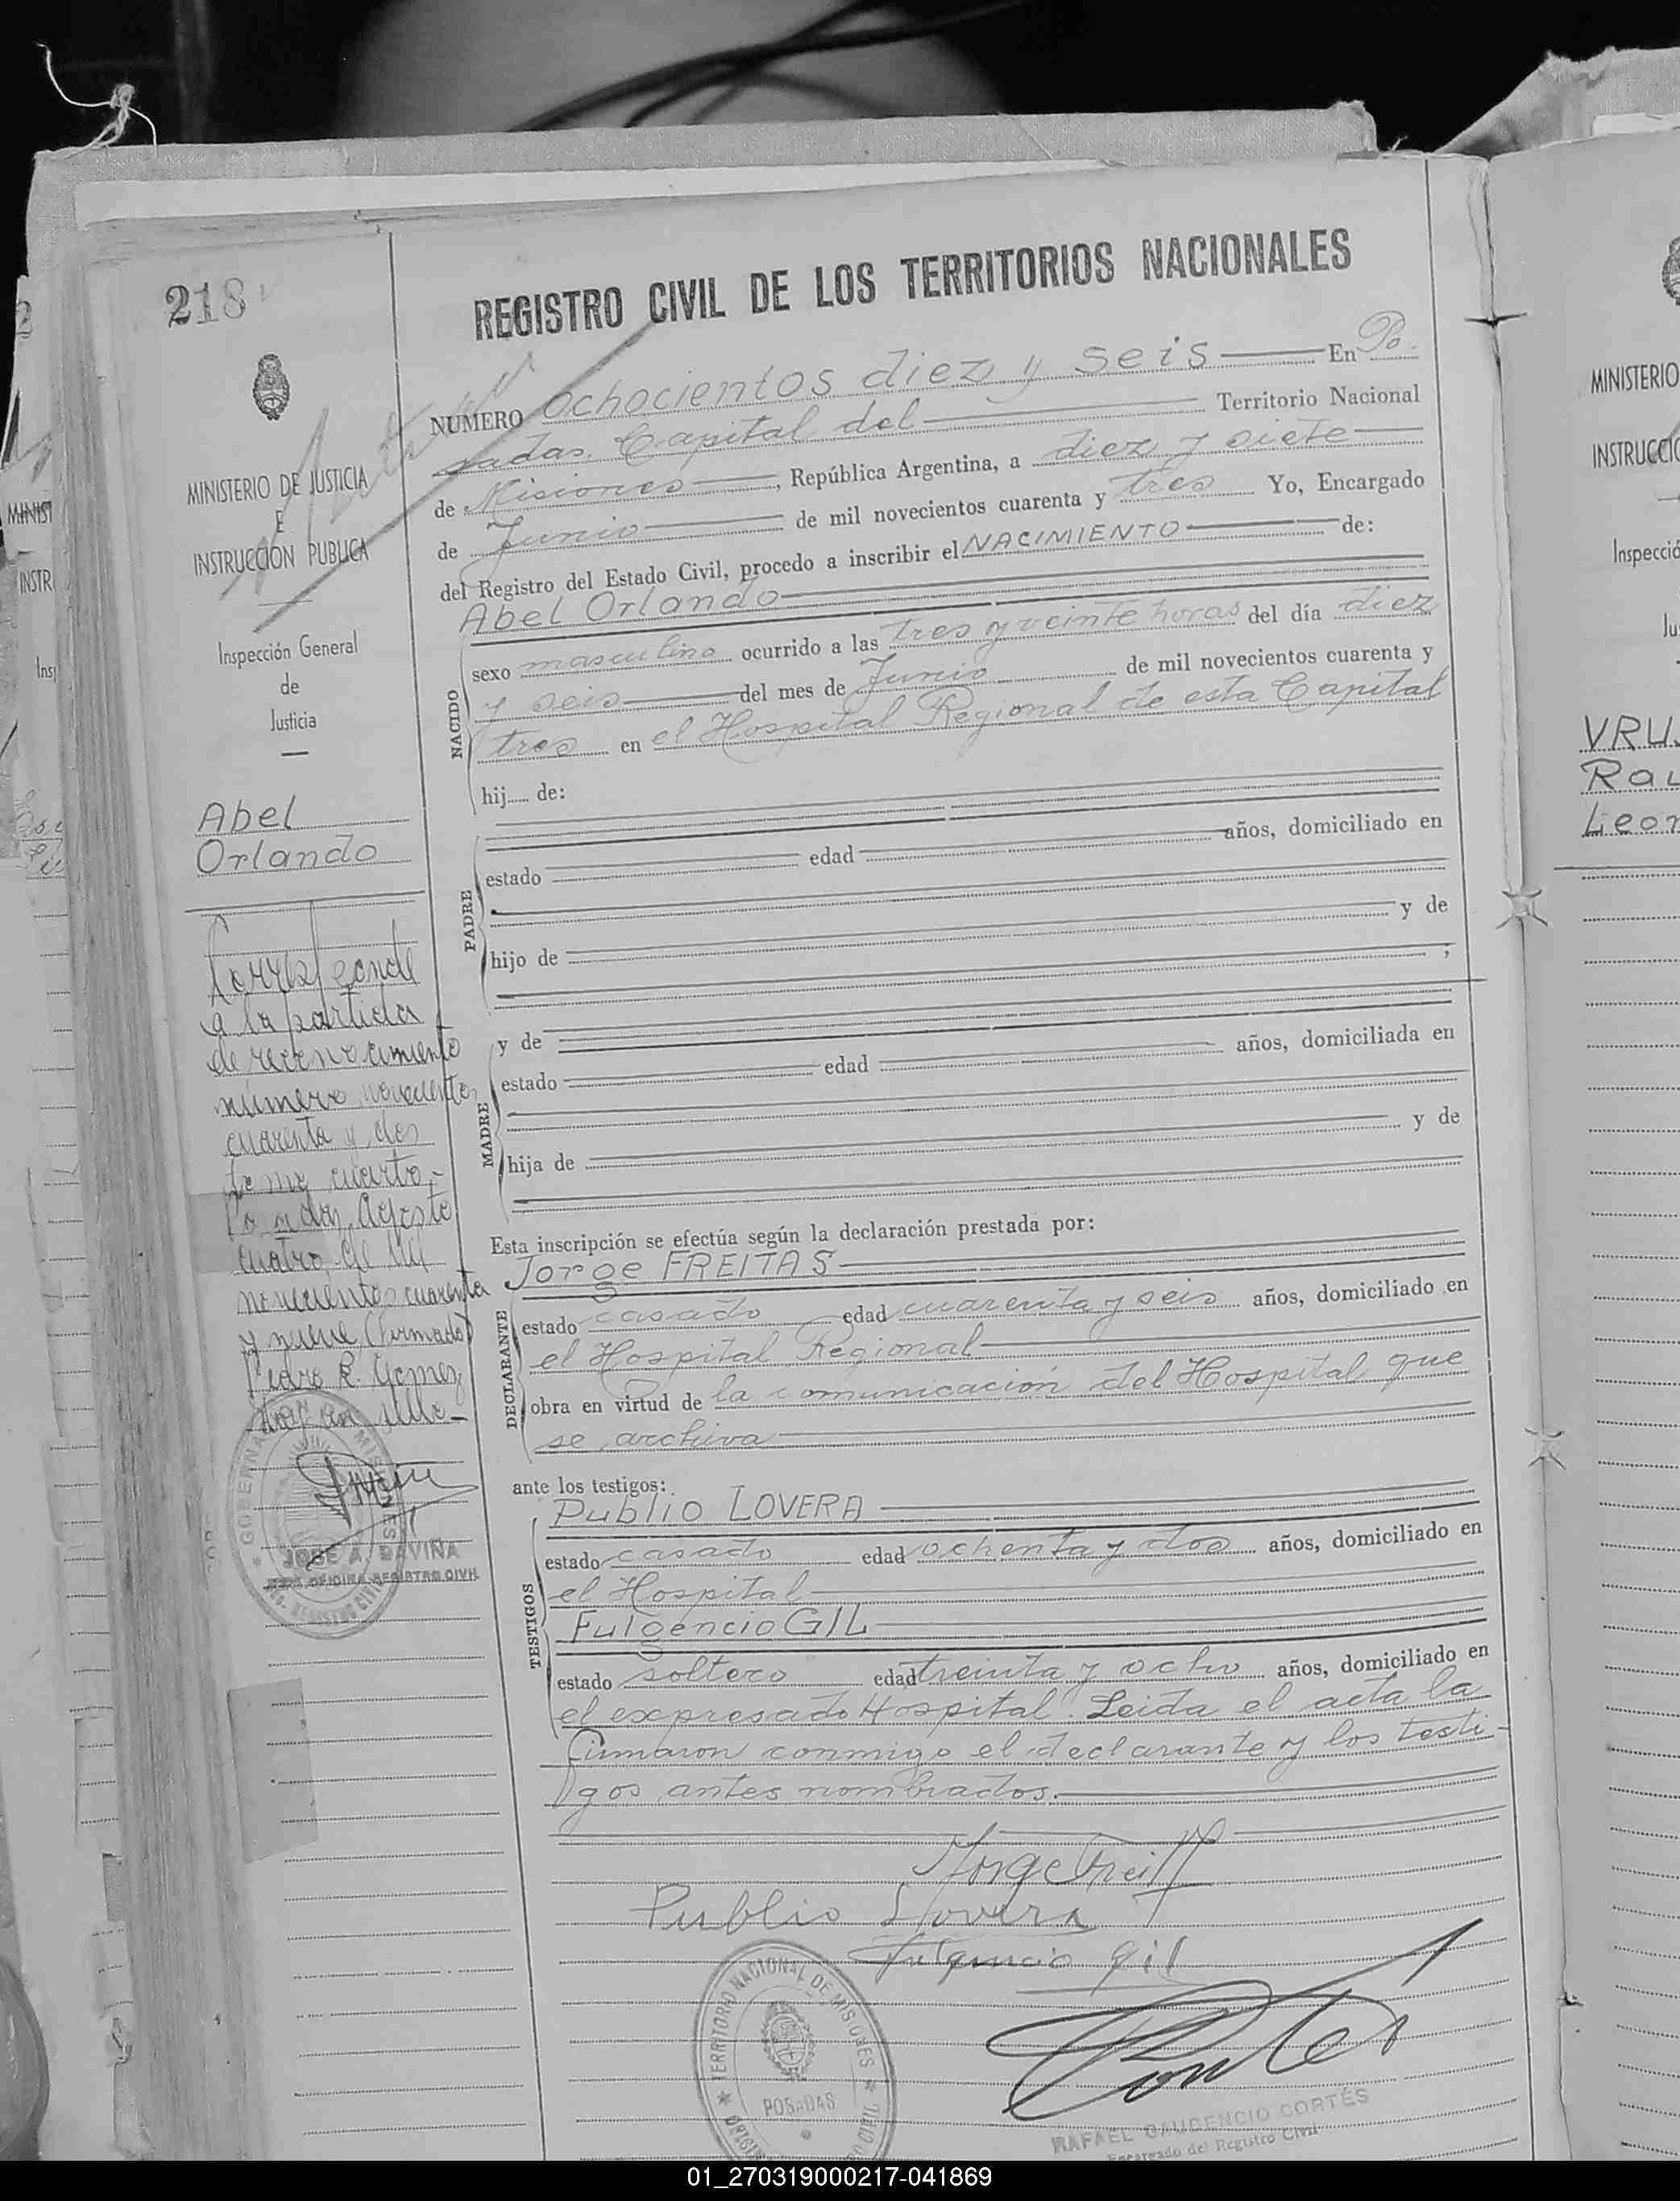 218
REGISTRO CIVIL DE LOS TERRITORIOS NACIONALES
NUMERO ochocientos diez y seis En Po-
sadas, Capital del Territorio Nacional
de Misiones, República Argentina, a diez y siete
de Junio de mil novecientos cuarenta y tres Yo, Encargado
del Registro del Estado Civil, procedo a inscribir el NACIMIENTO de:
Abel Orlando
NACIDO
sexo masculino ocurrido a las tres y veinte horas del día diez
y seis del mes de Junio de mil novecientos cuarenta y
tres en el Hospital Regional de esta Capital
hij..... de:
PADRE
estado edad años, domiciliado en
y de
hijo de ;
MADRE
y de
estado edad años, domiciliada en
y de
hija de
Esta inscripción se efectúa según la declaración prestada por:
Jorge FREITAS
DECLARANTE
estado casado edad cuarenta y seis años, domiciliado en
el Hospital Regional
obra en virtud de la comunicación del Hospital que
se archiva
ante los testigos:
Publio LOVERA
TESTIGOS
estado casado edad ochenta y dos años, domiciliado en
el Hospital
Fulgencio GIL
estado soltero edad treinta y ocho años, domiciliado en
el expresado Hospital. Leida el acta la
firmaron conmigo el declarante y los testi-
gos antes nombrados.
Jorge Freitas
Publio Lovera
Fulgencio Gil
TERRITORIO NACIONAL DE MISIONES
POSADAS
RAFAEL GAUDENCIO CORTÉS
Encargado del Registro Civil
MINISTERIO DE JUSTICIA
E
INSTRUCCIÓN PUBLICA
Inspección General
de
Justicia
Abel
Orlando
Corresponde
a la partida
de reconocimiento
número novecientos
cuarenta y dos
tomo cuarto.-
Posadas, Agosto
cuatro de mil
novecientos cuarenta
y nueve (firmado)
Pedro R. Gomez
JOSE A. DAVIÑA
OFICINA REGISTRO CIVIL
MINISTERIO
INSTRUCCIÓ
Inspecció
Ju
VRU
Rau
Leon
MINIST
INSTR
Insp
01_270319000217-041869